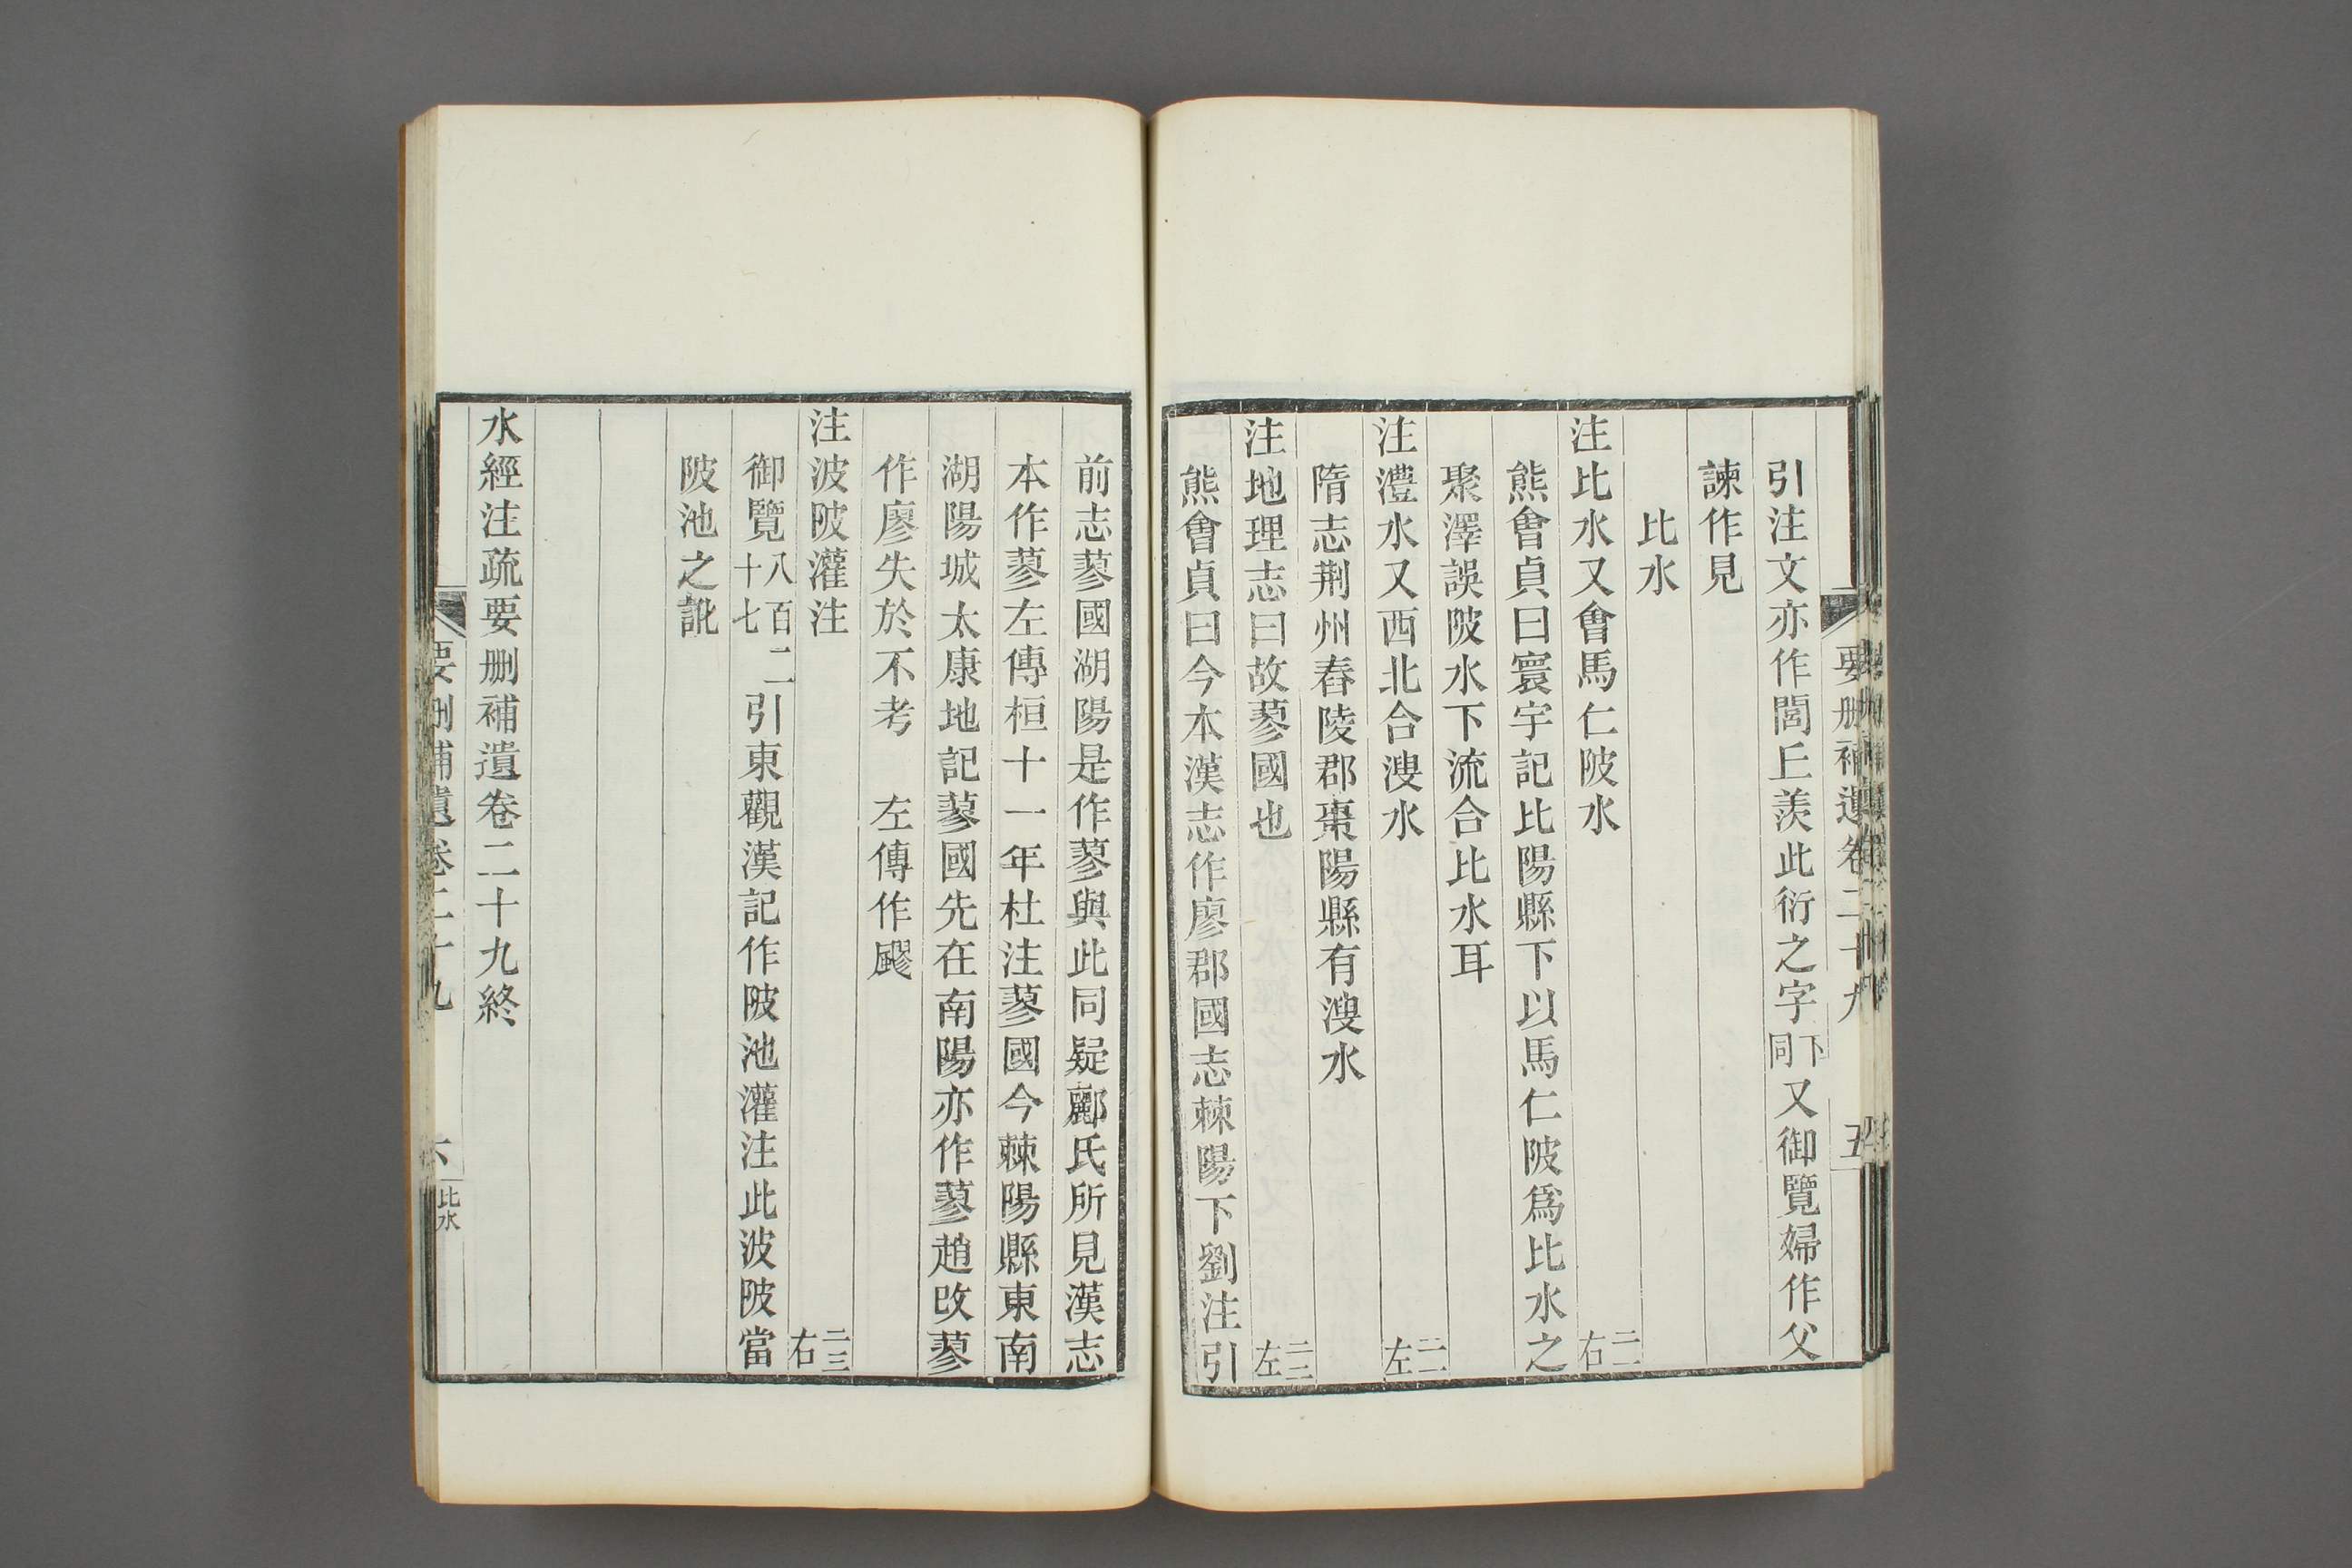 要刪補遺卷二十九 五
引注文亦作閻丘羨此衍之字下同又御覽婦作父
諫作見
比水
注比水又會馬仁陂水 二二右
熊會貞曰寰宇記比陽縣下以馬仁陂爲比水之
聚澤誤陂水下流合比水耳
注澧水又西北合溲水 二二左
隋志荆州舂陵郡棗陽縣有溲水
注地理志曰故蓼國也 二二左
熊會貞曰今本漢志作廖郡國志棘陽下劉注引
前志蓼國湖陽是作蓼與此同疑酈氏所見漢志
本作蓼左傳桓十一年杜注蓼國今棘陽縣東南
湖陽城太康地記蓼國先在南陽亦作蓼趙改蓼
作廖失於不考 左傳作飂
注波陂灌注 二三右
御覽八百二十七引東觀漢記作陂池灌注此波陂當
陂池之訛
水經注疏要刪補遺卷二十九終
要刪補遺卷二十九 六 比水